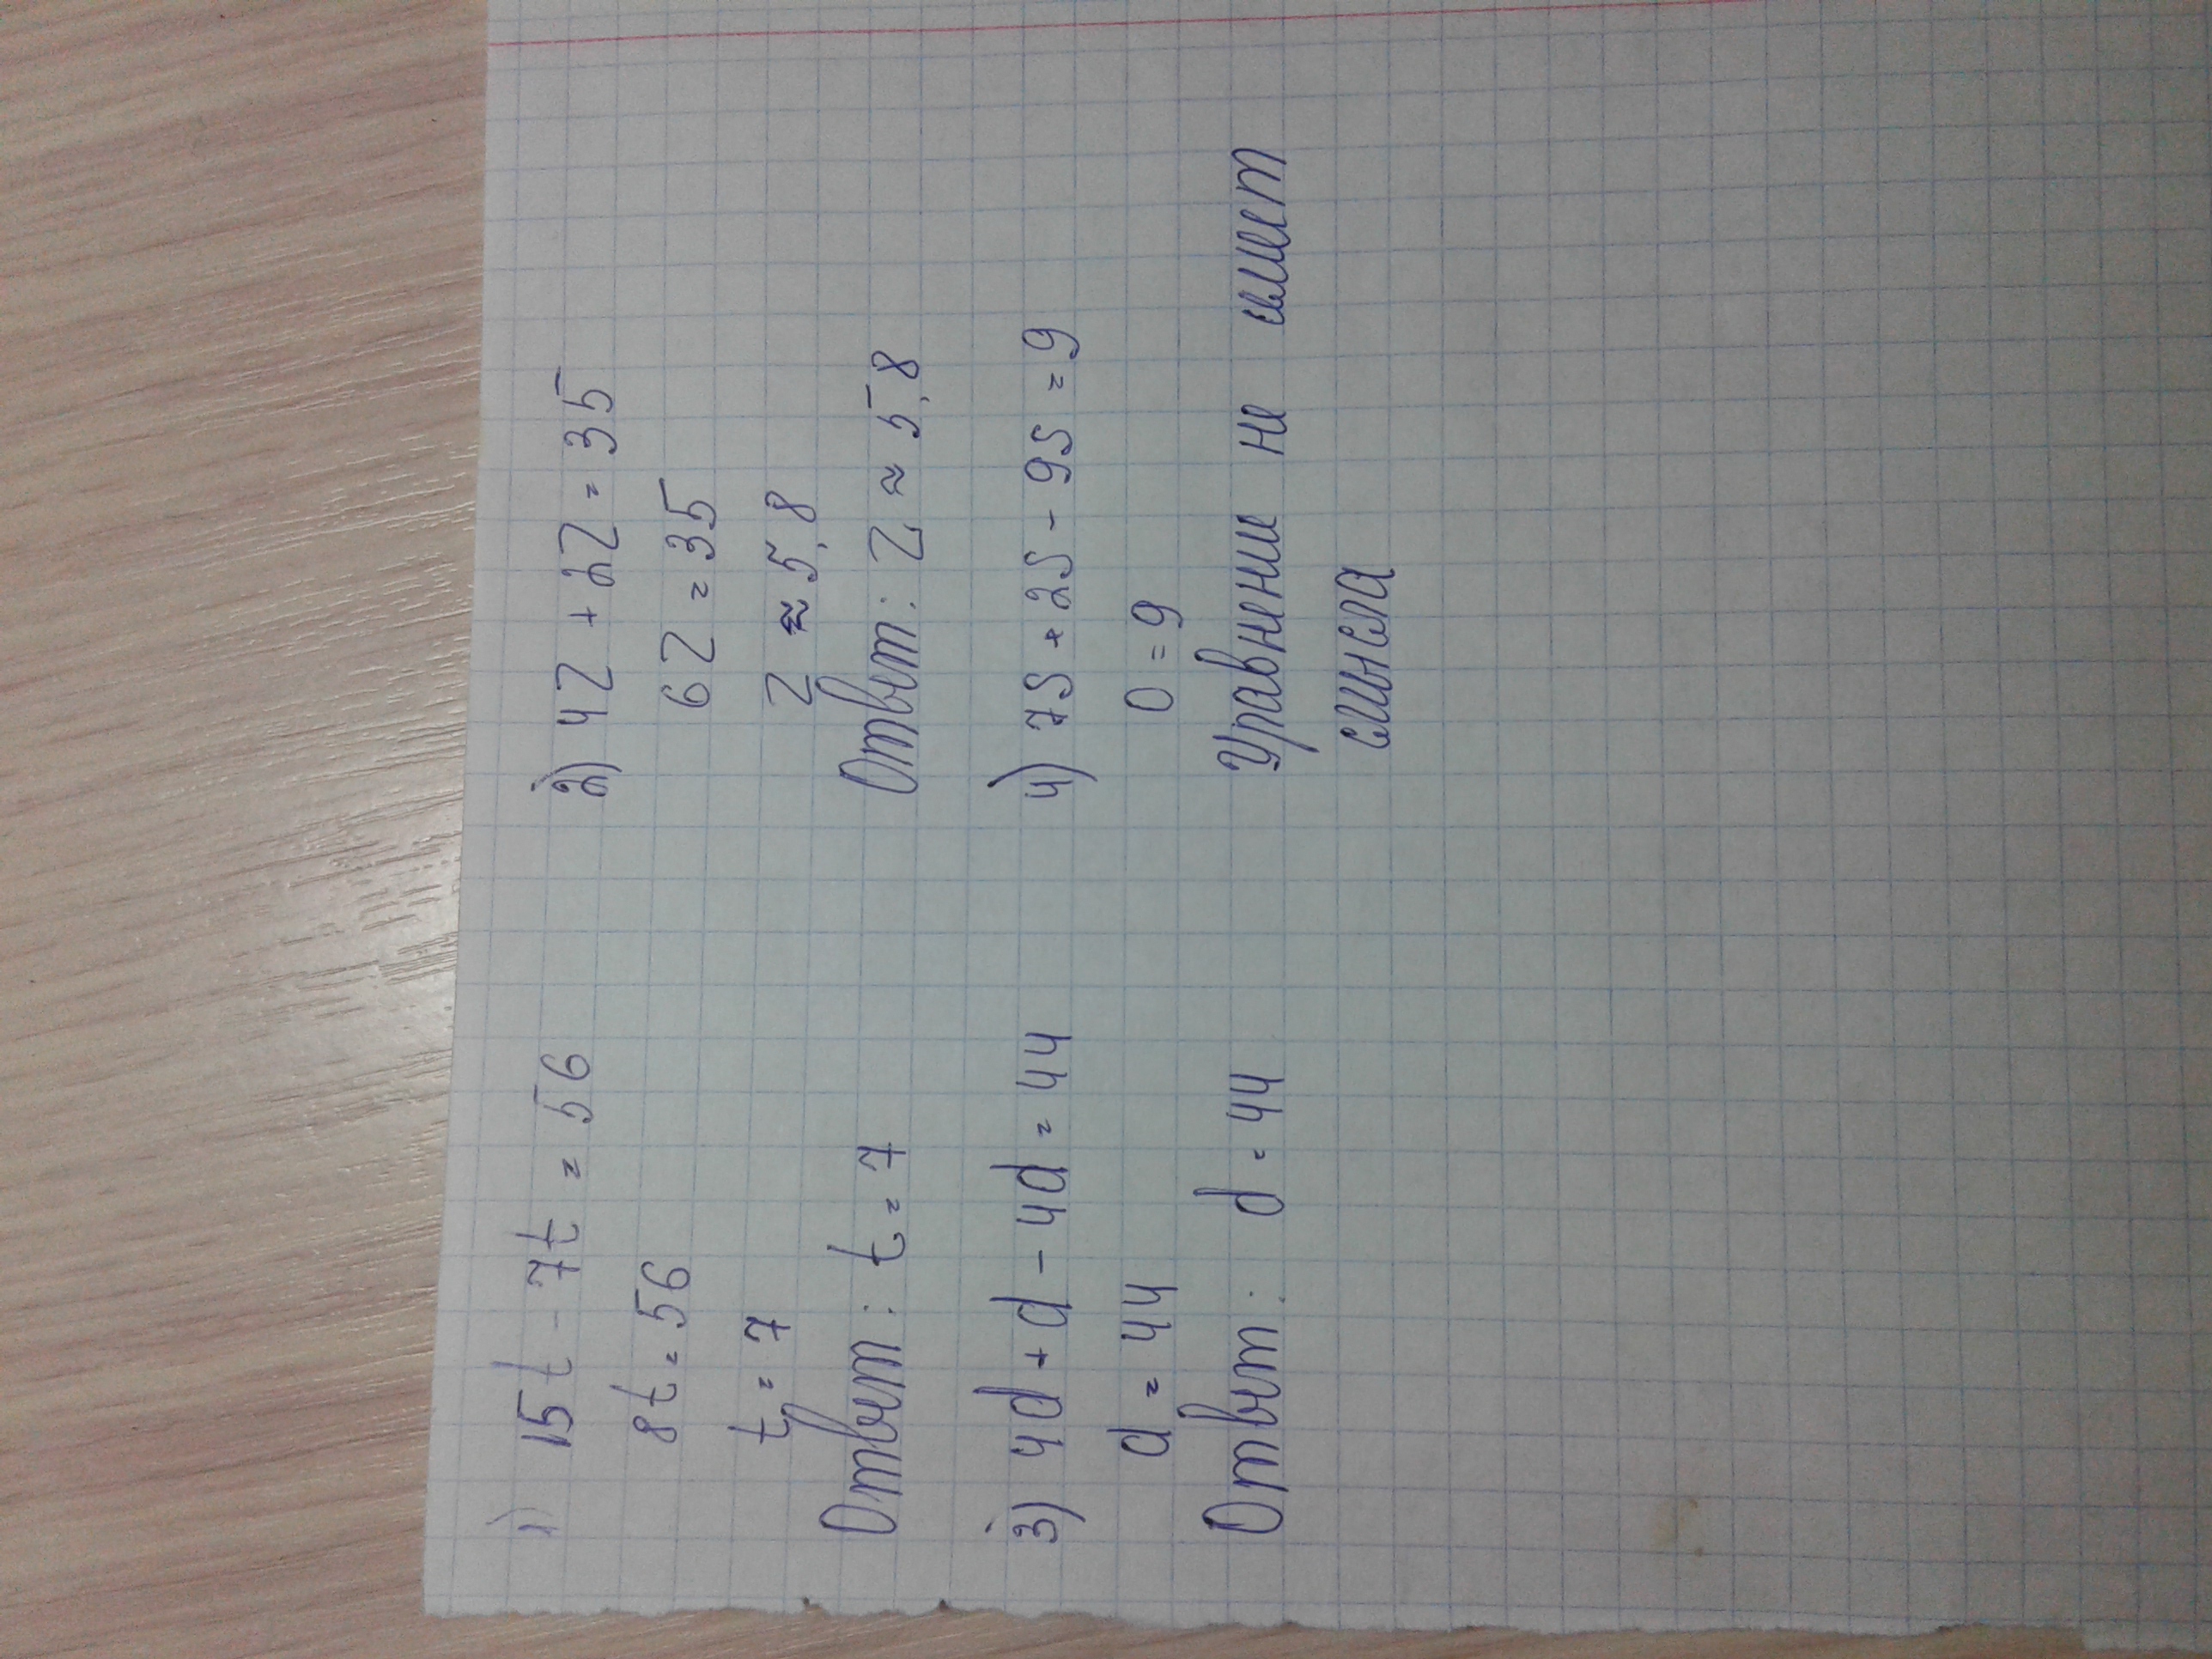 1) 15t - 7t = 56
8t = 56
t = 7
Ответ: t = 7
2) 4z + 2z = 35
6z = 35
z ≈ 5,8
Ответ: z ≈ 5,8
3) 4d + d - 4d = 44
d = 44
Ответ: d = 44
4) 7s + 2s - 9s = 9
0 = 9
Уравнение не имеет
смысла